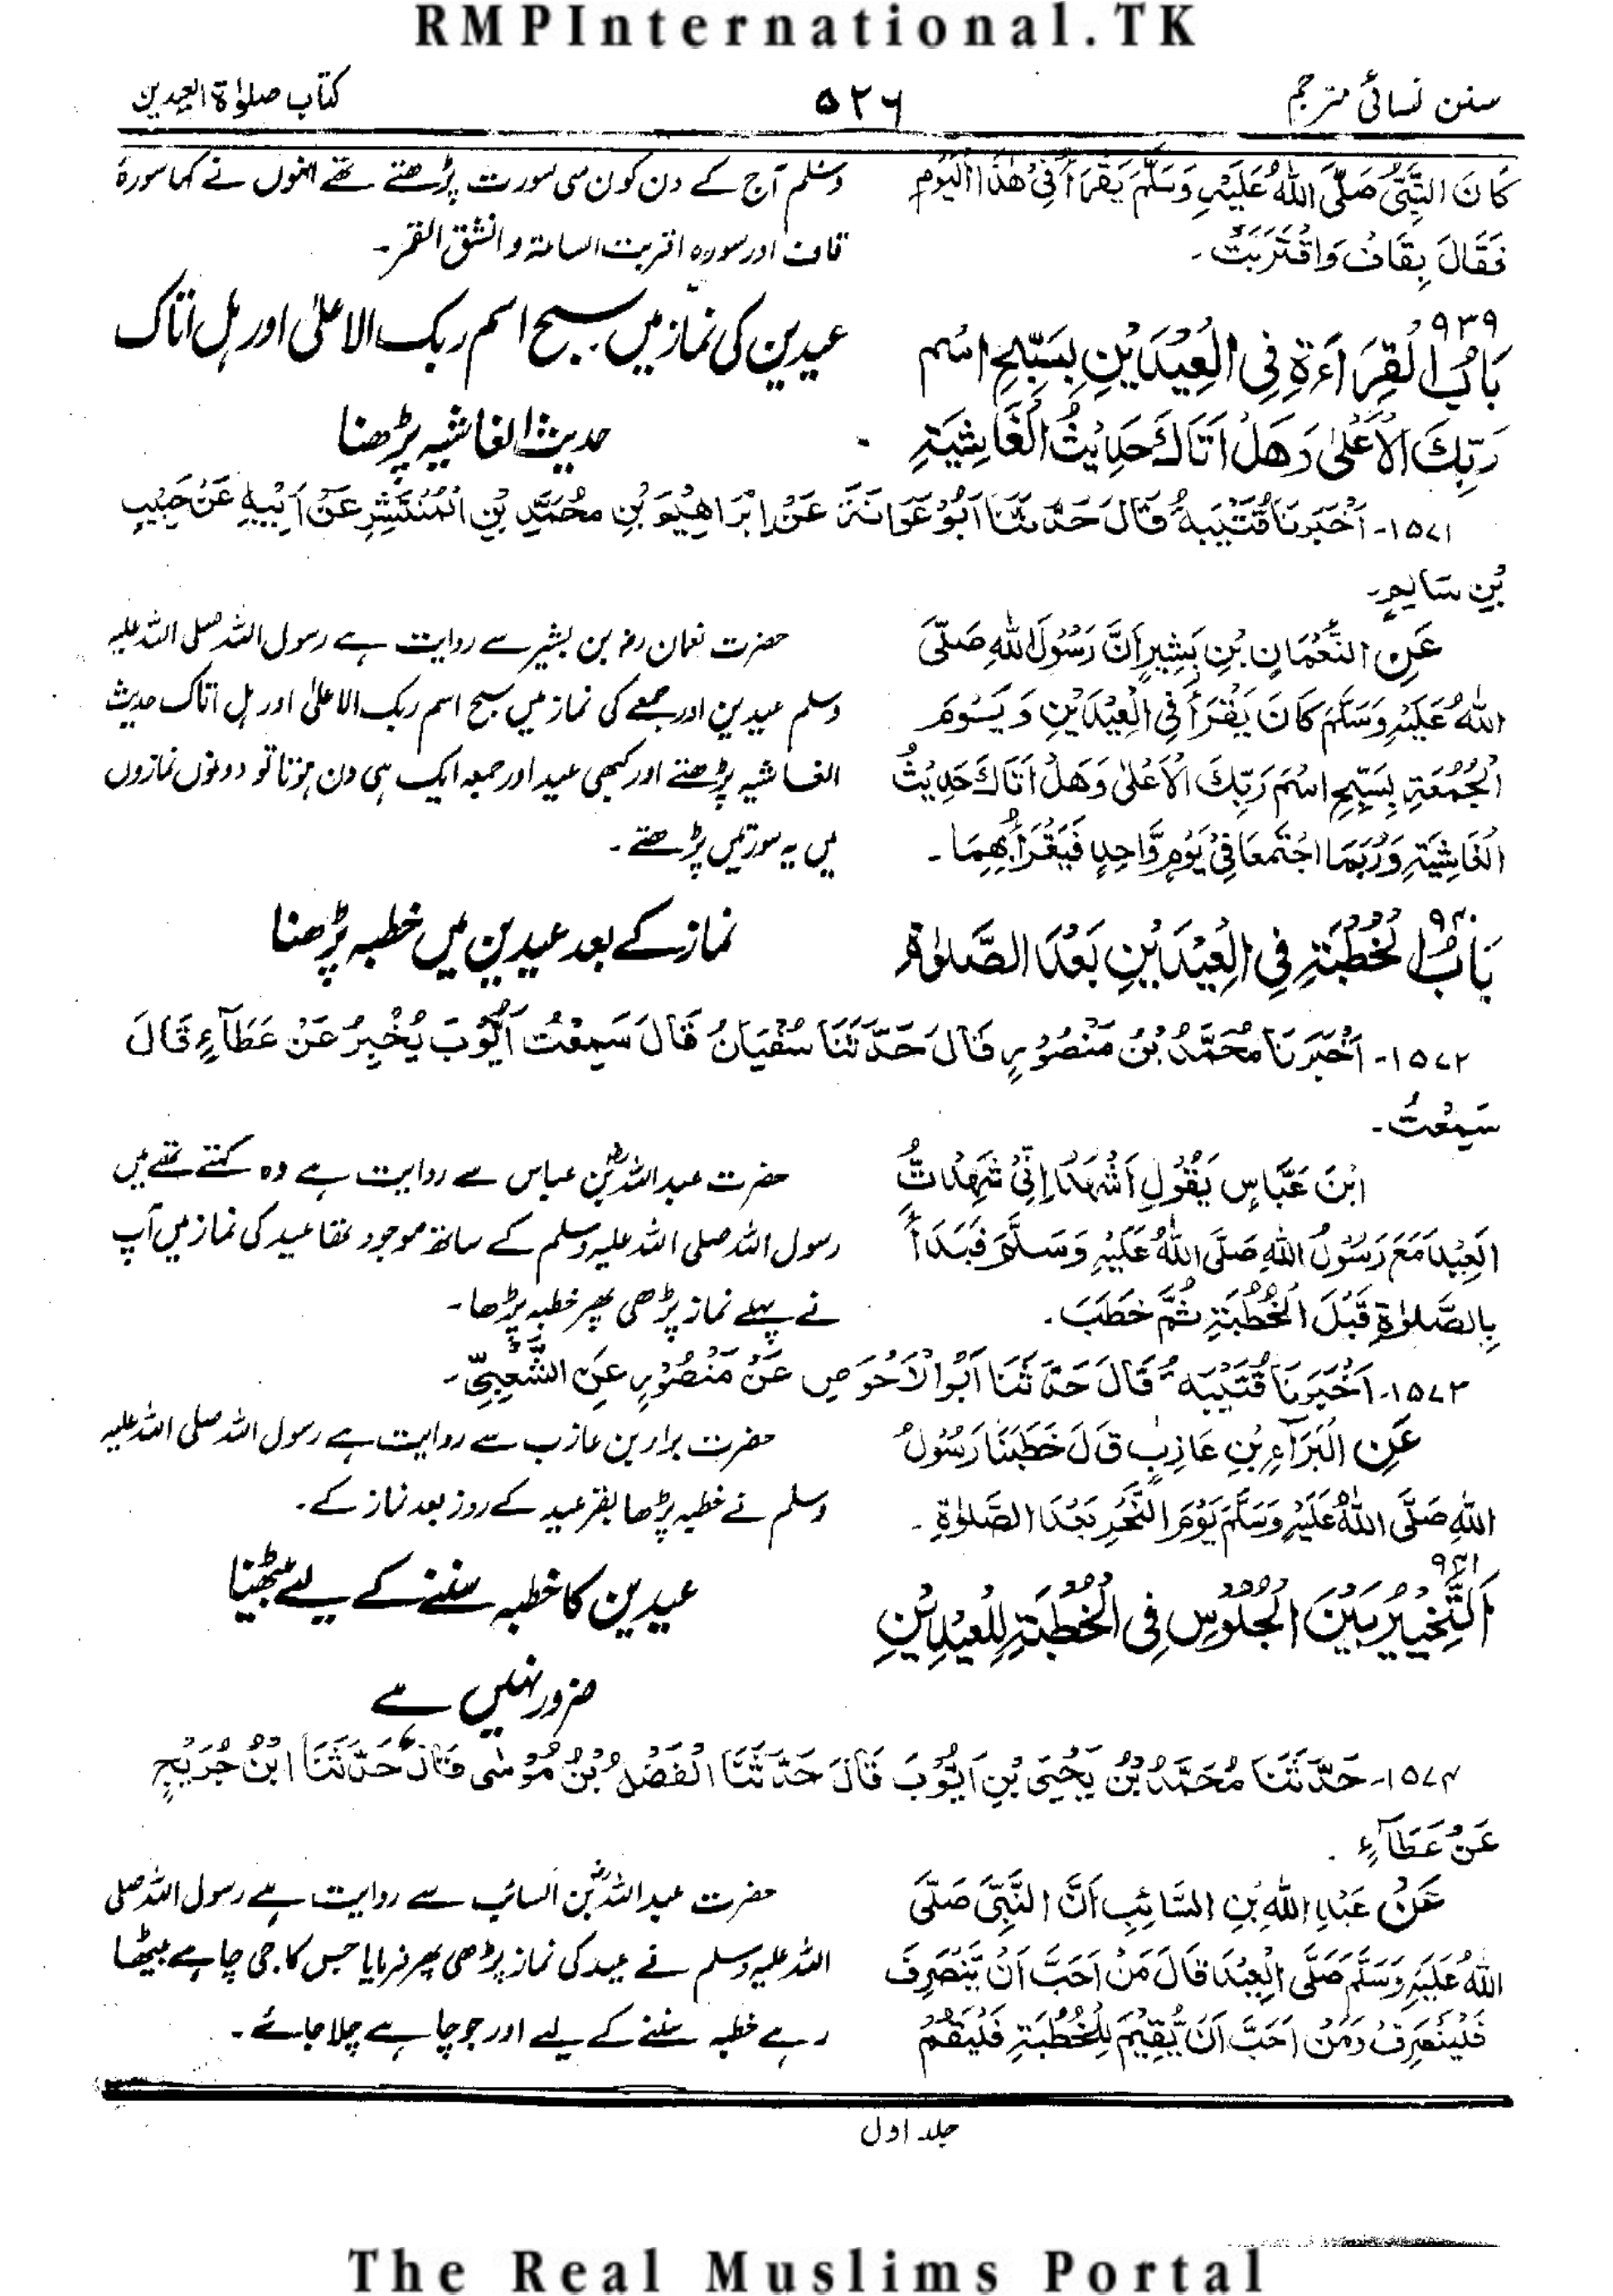 RMPInternational.TK
سنن نسائی مترجم ۵۲۶ کتاب صلوٰۃ العیدین
كَانَ النَّبِيُّ صَلَّى اللهُ عَلَيْهِ وَسَلَّمَ يَقْرَأُ فِيْ هٰذَا الْيَوْمِ
فَقَالَ بِقَافْ وَاقْتَرَبَتْ۔
وسلم آج کے دن کون سی سورت پڑھتے تھے انھوں نے کہا سورۂ
قاف اور سورہ اقربت الساعۃ وانشق القمر۔
۹۳۹
بَابُ الْقِرَاءَةِ فِى الْعِيْدَيْنِ بِسَبِّحِ اسْمَ
رَبِّكَ الْاَعْلٰى وَهَلْ اَتَاكَ حَدِيْثُ الْغَاشِيَةِ
عیدین کی نماز میں سبح اسم ربک الاعلیٰ اور ہل اتاک
حدیث الغاشیہ پڑھنا
۱۵۷۱- اَخْبَرَنَا قُتَيْبَةُ قَالَ حَدَّثَنَا اَبُوْ عَوَانَةَ عَنْ اِبْرَاهِيْمَ بْنِ مُحَمَّدِ بْنِ الْمُنْتَشِرِ عَنْ اَبِيْهِ عَنْ حَبِيْبِ
بْنِ سَالِمٍ۔
عَنِ النُّعْمَانِ بْنِ بَشِيْرٍ اَنَّ رَسُوْلَ اللهِ صَلَّى
اللهُ عَلَيْهِ وَسَلَّمَ كَانَ يَقْرَأُ فِى الْعِيْدَيْنِ وَ يَوْمَ
الْجُمُعَةِ بِسَبِّحِ اسْمَ رَبِّكَ الْاَعْلٰى وَهَلْ اَتَاكَ حَدِيْثُ
الْغَاشِيَةِ وَرُبَمَا اجْتَمَعَا فِىْ يَوْمٍ وَّاحِدٍ فَيَقْرَأُ بِهِمَا۔
حضرت نعمان رضہ بن بشیر سے روایت ہے رسول اللہ صلی اللہ علیہ
وسلم عیدین اور جمعے کی نماز میں سبح اسم ربک الاعلیٰ اور ہل اتاک حدیث
الغاشیہ پڑھتے اور کبھی عید اور جمعہ ایک ہی دن ہوتا تو دونوں نمازوں
میں یہ سورتیں پڑھتے۔
۹۴۰
بَابُ الْخُطْبَةِ فِى الْعِيْدَيْنِ بَعْدَ الصَّلٰوةِ
نماز کے بعد عیدین میں خطبہ پڑھنا
۱۵۷۲- اَخْبَرَنَا مُحَمَّدُ بْنُ مَنْصُوْرٍ قَالَ حَدَّثَنَا سُفْيَانُ قَالَ سَمِعْتُ اَيُّوْبَ يُخْبِرُ عَنْ عَطَآءٍ قَالَ
سَمِعْتُ۔
ابْنَ عَبَّاسٍ يَقُوْلُ اَشْهَدُ اِنِّىْ شَهِدْتُّ
الْعِيْدَ مَعَ رَسُوْلِ اللهِ صَلَّى اللهُ عَلَيْهِ وَسَلَّمَ فَبَدَأَ
بِالصَّلٰوةِ قَبْلَ الْخُطْبَةِ ثُمَّ خَطَبَ۔
حضرت عبد اللہؓ بن عباس سے روایت ہے وہ کہتے تھے میں
رسول اللہ صلی اللہ علیہ وسلم کے ساتھ موجود تھا عید کی نماز میں آپ
نے پہلے نماز پڑھی پھر خطبہ پڑھا۔
۱۵۷۳- اَخْبَرَنَا قُتَيْبَةُ قَالَ حَدَّثَنَا اَبُو الْاَحْوَصِ عَنْ مَنْصُوْرٍ عَنِ الشَّعْبِيِّ۔
عَنِ الْبَرَآءِ بْنِ عَازِبٍ قَالَ خَطَبَنَا رَسُوْلُ
اللهِ صَلَّى اللهُ عَلَيْهِ وَسَلَّمَ يَوْمَ النَّحْرِ بَعْدَ الصَّلٰوةِ۔
حضرت براء بن عازب سے روایت ہے رسول اللہ صلی اللہ علیہ
وسلم نے خطبہ پڑھا بقر عید کے روز بعد نماز کے۔
۹۴۱
اَلتَّخْيِيْرُ بَيْنَ الْجُلُوْسِ فِى الْخُطْبَةِ لِلْعِيْدَيْنِ
عیدین کا خطبہ سننے کے لیے بیٹھنا
ضرور نہیں ہے
۱۵۷۴- حَدَّثَنَا مُحَمَّدُ بْنُ يَحْيَى بْنِ اَيُّوْبَ قَالَ حَدَّثَنَا الْفَضْلُ بْنُ مُوْسٰى قَالَ حَدَّثَنَا ابْنُ جُرَيْجٍ
عَنْ عَطَآءٍ۔
عَنْ عَبْدِ اللهِ بْنِ السَّائِبِ اَنَّ النَّبِىَّ صَلَّى
اللهُ عَلَيْهِ وَسَلَّمَ صَلَّى الْعِيْدَ قَالَ مَنْ اَحَبَّ اَنْ يَّنْصَرِفَ
فَلْيَنْصَرِفْ وَمَنْ اَحَبَّ اَنْ يُّقِيْمَ لِلْخُطْبَةِ فَلْيُقِمْ
حضرت عبد اللہؓ بن السائب سے روایت ہے رسول اللہ صلی
اللہ علیہ وسلم نے عید کی نماز پڑھی پھر فرمایا جس کا جی چاہے بیٹھا
رہے خطبہ سننے کے لیے اور جو چاہے چلا جائے۔
جلد اول
The Real Muslims Portal